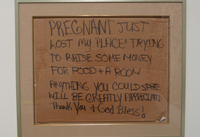 PREGNANT JUST
LOST MY PLACE! TRYING
TO RAISE SOME MONEY
FOR FOOD + A ROOM
ANYTHING YOU COULD SPARE
WILL BE GREATLY APPRECIATED
Thank you + God Bless!